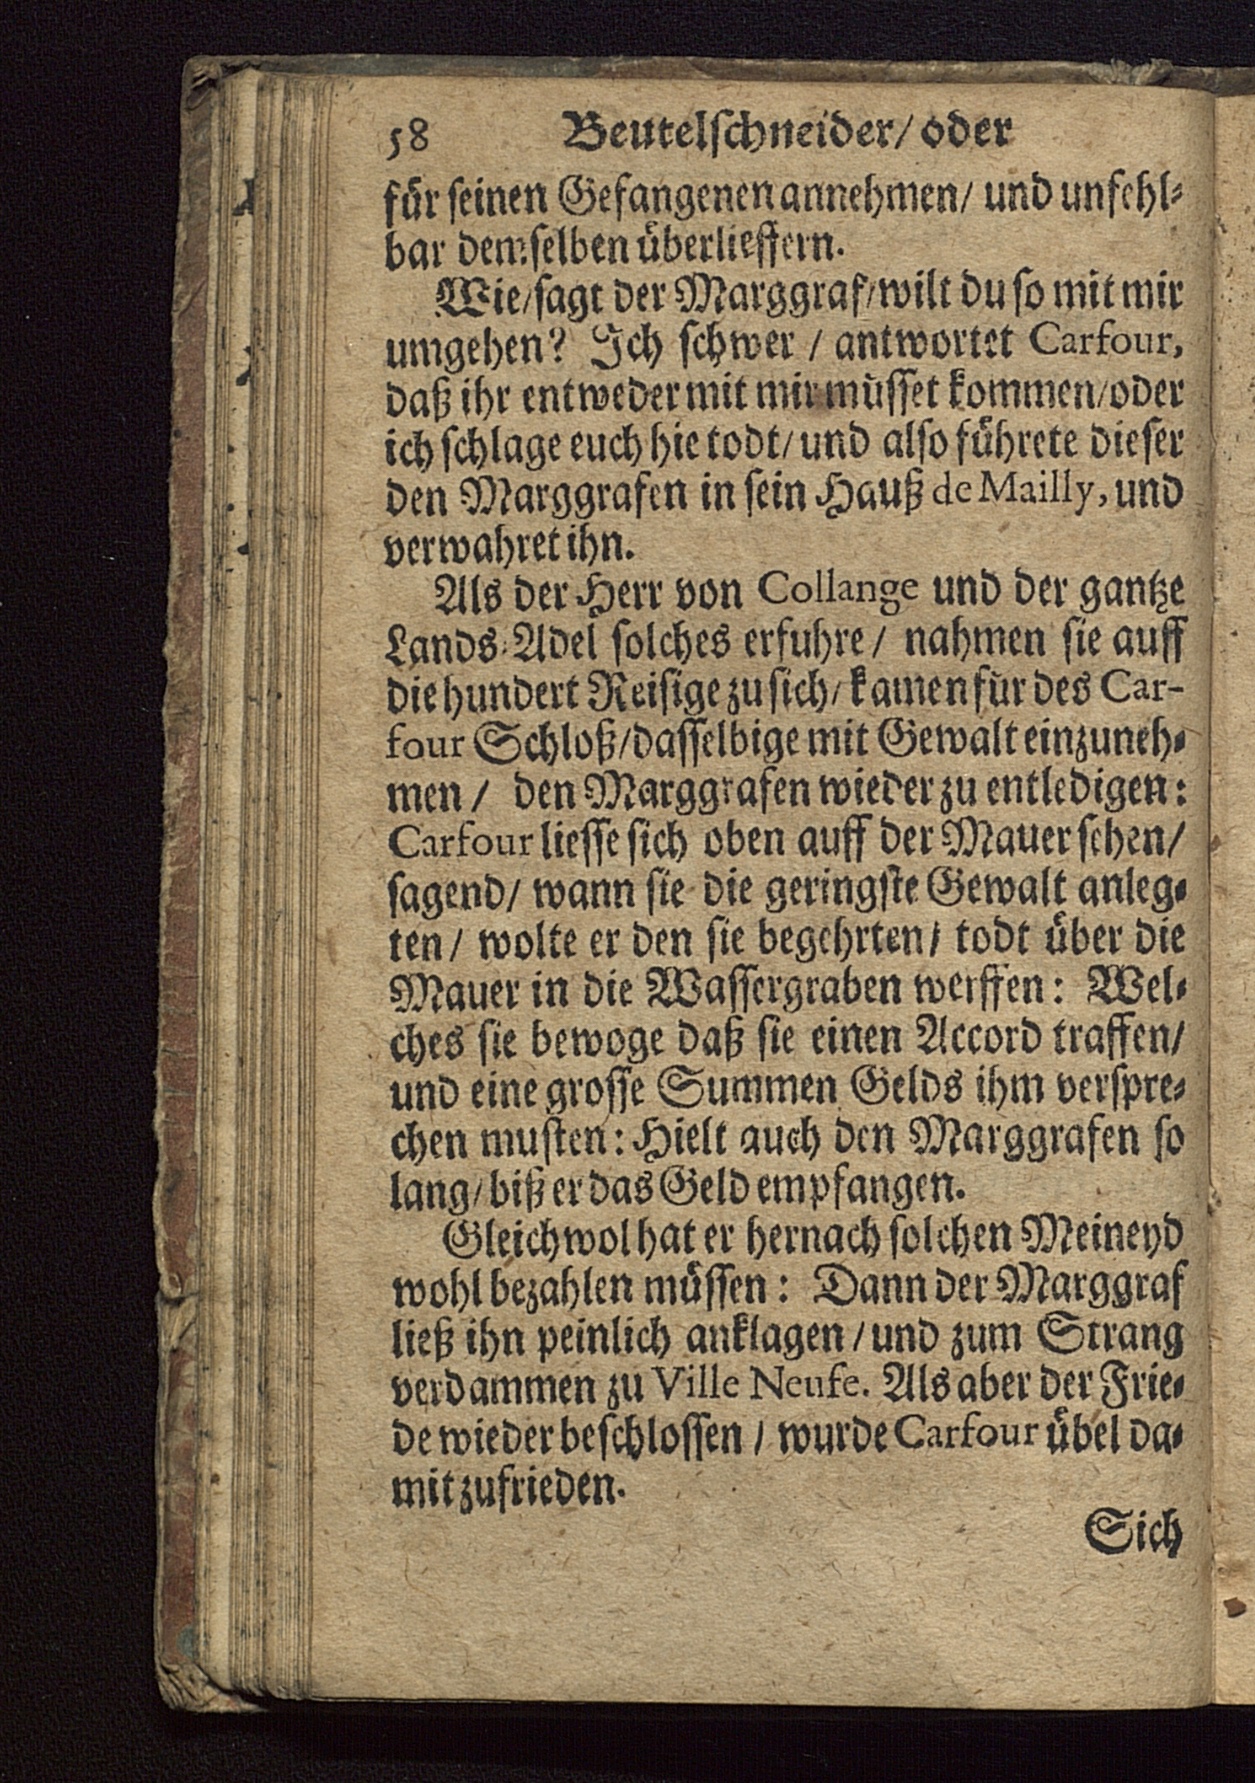 58 Beutelschneider/ oder
für seinen Gefangenen annehmen/ und unfehl-
bar demselben überlieffern.
Wie/sagt der Marggraf/wilt du so mit mir
umgehen? Ich schwer / antwortet Carfour,
daß ihr entweder mit mir müsset kommen/oder
ich schlage euch hie todt/ und also führete dieser
den Marggrafen in sein Hauß de Mailly, und
verwahret ihn.
Als der Herr von Collange und der gantze
Lands-Adel solches erfuhre / nahmen sie auff
die hundert Reisige zu sich/ kamen für des Car-
four Schloß/dasselbige mit Gewalt einzuneh-
men / den Marggrafen wieder zu entledigen:
Carfour liesse sich oben auff der Mauer sehen/
sagend/ wann sie die geringste Gewalt anleg-
ten / wolte er den sie begehrten / todt über die
Mauer in die Wassergraben werffen: Wel-
ches sie bewoge daß sie einen Accord traffen/
und eine grosse Summen Gelds ihm verspre-
chen musten: Hielt auch den Marggrafen so
lang/ biß er das Geld empfangen.
Gleichwol hat er hernach solchen Meineyd
wohl bezahlen müssen: Dann der Marggraf
ließ ihn peinlich anklagen / und zum Strang
verdammen zu Ville Neufe. Als aber der Frie-
de wieder beschlossen / wurde Carfour übel da-
mit zufrieden.
Sich